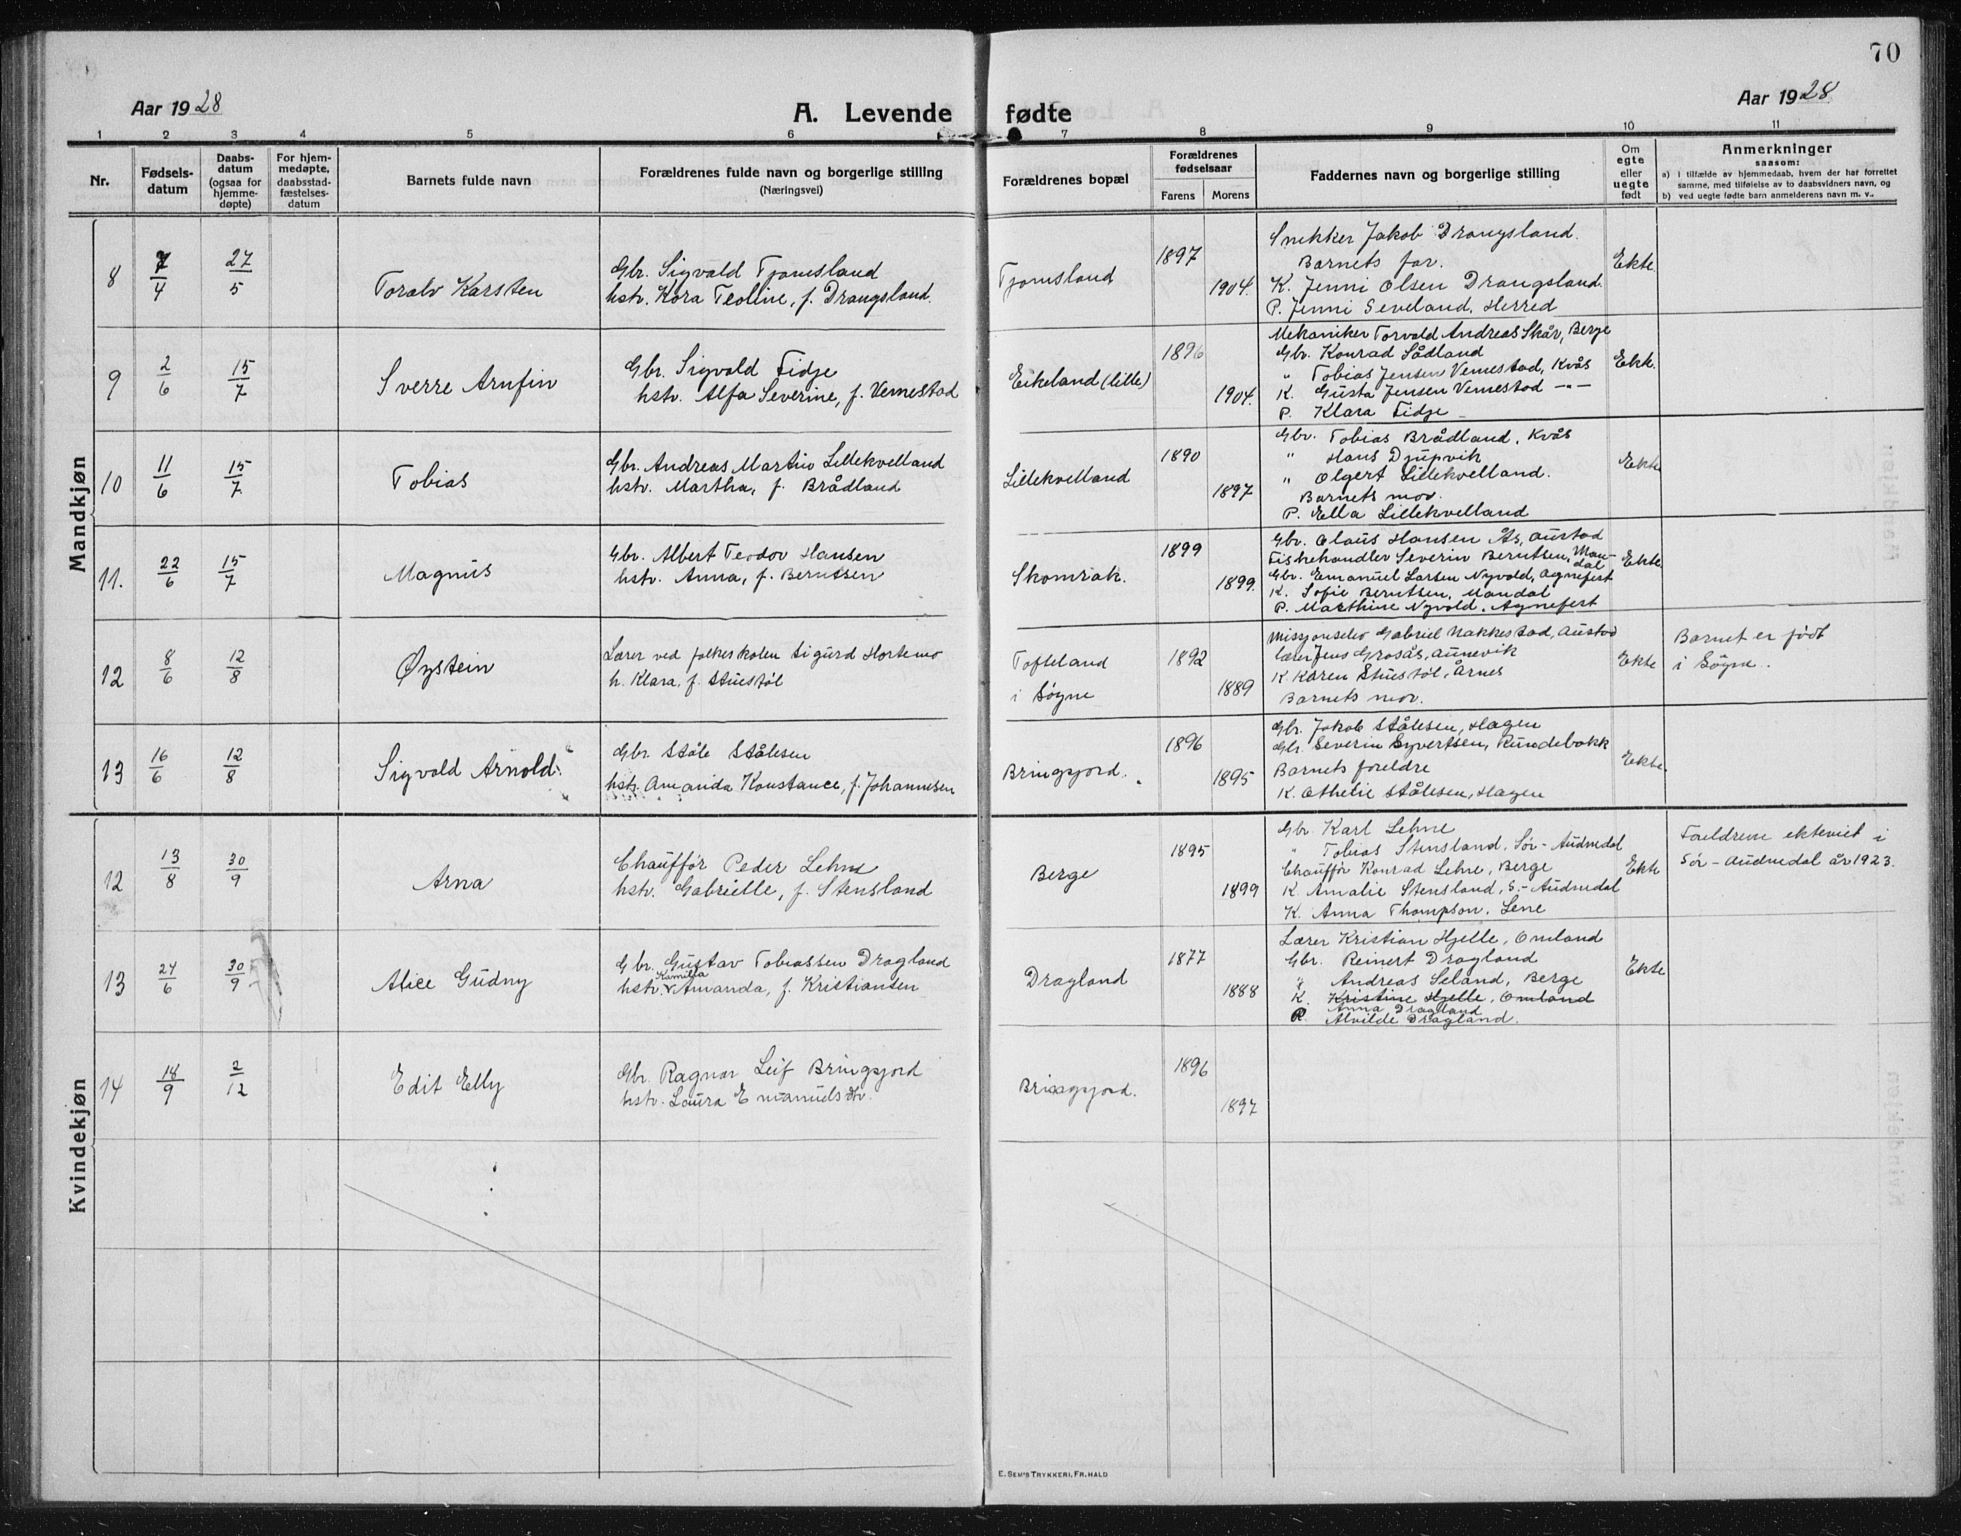 70
Aar 1928
A. Levende fødte
Aar 1928
1 2 3 4 5 6 7 8 9 10 11
Nr.
Fødsels-
datum
Daabs-
datum
(ogsaa for
hjemme-
døpte)
For hjem-
medøpte,
daabsstad-
fæstelses-
datum
Barnets fulde navn
Forældrenes fulde navn og borgerlige stilling
(Næringsvei)
Forældrenes bopæl
Forældrenes
fødselsaar
Farens Morens
Faddernes navn og borgerlige stilling
Om
egte
eller
uegte
født
Anmerkninger
saasom:
a) I tilfælde av hjemmedaab, hvem der har forrettet
samme, med tilføielse av to daabsvidners navn, og
b) ved uegte fødte barn anmelderens navn m. v.,
Mandkjøn
8 7/4 27/5 Toralv Karsten
Gbr. Sigvald Tjomsland
hstr. Kora Teoline, f. Drangsland.
Tjomsland
1897
1904.
Snekker Jakob Drangsland.
Barnets far.
K. Jenni Olsen Drangsland.
P. Jenni Seveland, Herred
Ekte.
9 2/6 15/7 Sverre Arnfin
Gbr. Sigvald Fidje
hstr. Alfa Severine, f. Vemestad
Eikeland (lille)
1896
1904.
Mekaniker Torvald Andreas Skår, Berge
Gbr. Konrad Sådland
" Tobias Jensen Vemestad, Kvås
K. Gusta Jensen Vemestad -"-
P. Klara Fidje
Ekte.
10 11/6 15/7 Tobias
Gbr. Andreas Martin Lillekvelland
hstr. Martha, f. Brådland
Lillekvelland
1890
1897
Gbr. Tobias Brådland, Kvås
" Hans Djupvik
" Olgert Lillekvelland.
Barnets mor.
P. Ella Lillekvelland
Ekte
11. 22/6 15/7 Magnus
Gbr. Albert Teodor Hansen
hstr. Anna, f. Berntsen
Skomrak.
1899
1899.
Gbr. Olaus Hansen Ås, Austad
Fiskehandler Severin Berntsen, Man-
dal
Gbr. Emanuel Larsen Nyvold, Agnefest
K. Sofie Berntsen, Mandal
P. Marthine Nyvold, Agnefest
Ekte
12 8/6 12/8 Øystein
Lærer ved folkeskolen Sigurd Hortemo
h. Klara, f. Stuestøl
Tofteland
i Søgne
1892
1889
Misjonselev Gabriel Nakkestad, Austad
Lærer Jens Grosås, Aunevik
K Karen Stuestøl, Årnes
Barnets mor.
Ekte
Barnet er født
i Søgne.
13 16/6 12/8 Sigvald Arnold
Gbr Ståle Stålesen
hstr. Amanda Konstance, f. Johannesen
Bringsjord.
1896
1895
Gbr. Jakob Stålesen, Hagen
Gbr. Severin Syvertsen, Rundebakk
Barnets foreldre
K. Othelie Stålesen, Hagen
Ekte.
Kvindekjøn
12 13/8 30/9 Arna
Chauffør Peder Lehne
hstr. Gabrielle, f. Stensland
Berge
1895
1899
Gbr Karl Lehne
" Tobias Stensland, Sør-Audnedal
Chauffør Konrad Lehne, Berge
K. Amalie Stensland, S.-Audnedal
K. Anna Thompson, Lene
Ekte
Foreldrene ekteviet i
Sør-Audnedal år 1923.
13 24/6 30/9 Alice Gudny
Gbr. Gustav Tobiassen Dragland
Kamilla
hstr. Amanda, f. Kristiansen
Dragland
1877
1888
Lærer Kristian Hjelle, Omland
Gbr. Reinert Dragland
" Andreas Seland, Berge
K. Kristine Hjelle, Omland
Anna Dragland
P. Alvilde Dragland.
Ekte
14 18/9 2/12 Edit Elly
Gbr. Ragnar Leif Bringsjord
hstr. Laura Emanuelsdtr.
Bringsjord.
1896
1897
E. Sem's Trykkeri, Fr. hald